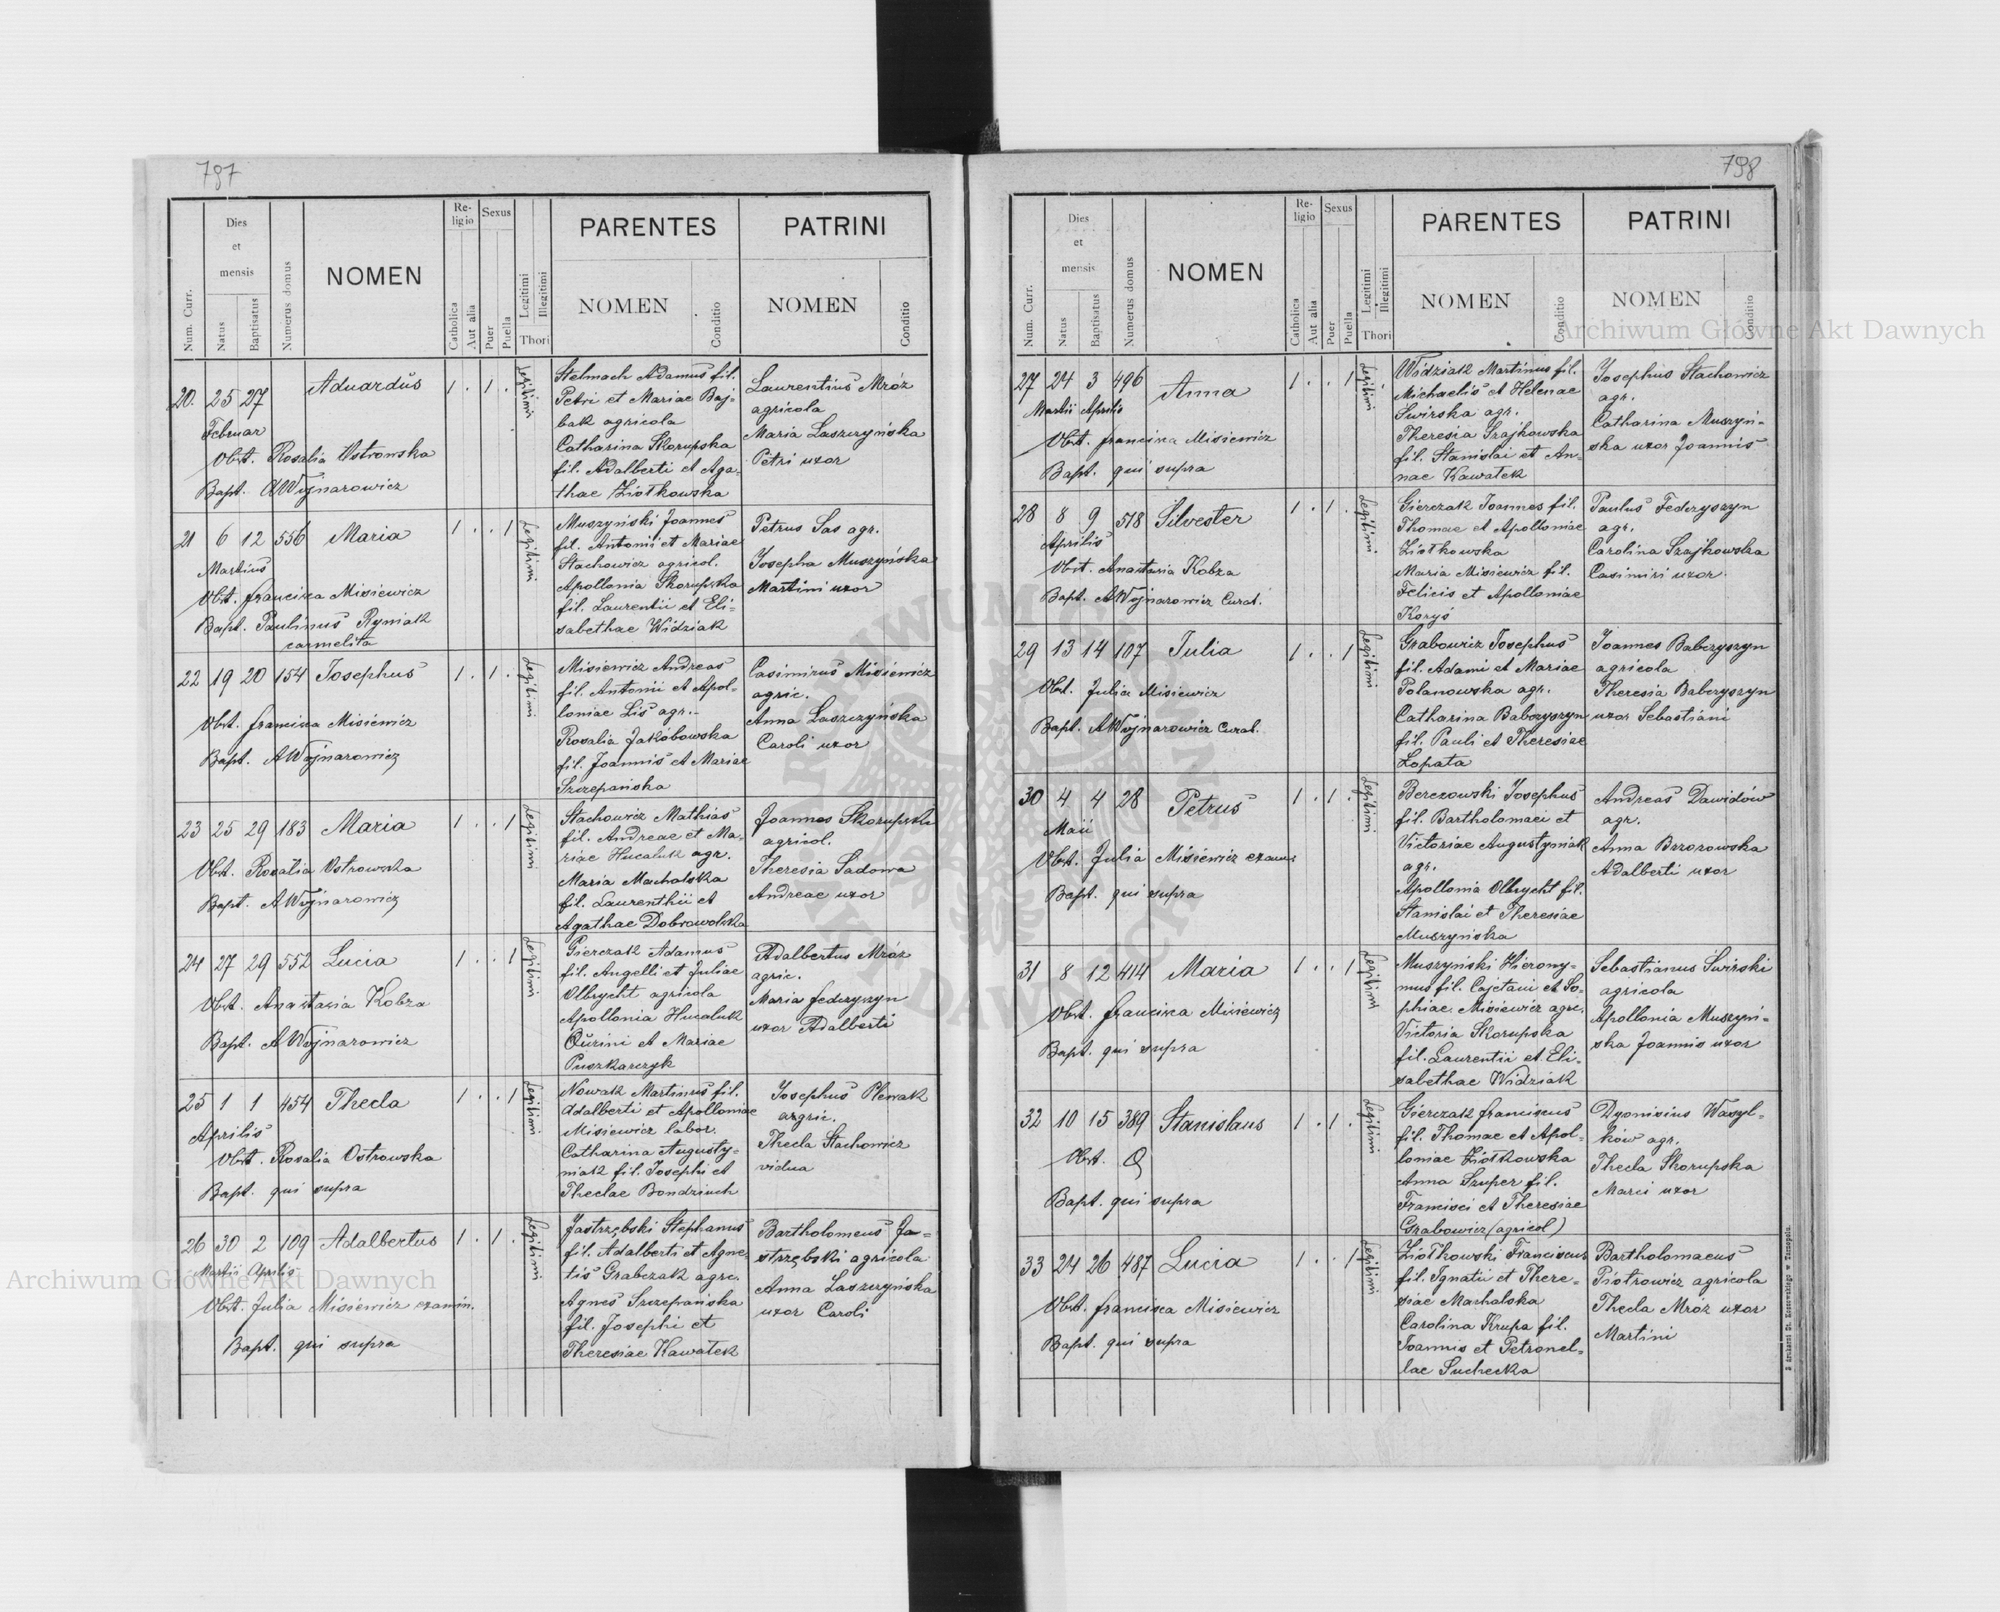 797
Num. Curr.
Dies et mensis
Natus
Baptisatus
Numerus domus
NOMEN
Religio
Catholica
Aut alia
Sexus
Puer
Puella
Legitimi
Illegitimi
Thori
PARENTES
NOMEN
Conditio
PATRINI
NOMEN
Conditio
20. 25 27 Aduardus 1 . 1 . Legitimi
Februar
Obst. Rosalia Ostrowska
Bapt. AWojnarowicz
Stelmach Adamus fil.
Petri et Mariae Baj-
bak agricola
Catharina Skorupska
fil. Adalberti et Aga-
thae Ziółkowska
Laurentius Mróz
agricola
Maria Laszczyńska
Petri uxor
21 6 12 556 Maria 1 . . 1 Legitimi
Martius
Obst. francisca Misiewicz
Bapt. Paulinus Ryniak
carmelita
Muszyński Joannes
fil. Antonii et Mariae
Stachowicz agricol.
Apollonia Skorupska
fil. Laurentii et Eli-
sabethae Widziak
Petrus Sas agr.
Josepha Muszyńska
Martini uxor
22 19 20 154 Josephus 1 . 1 . Legitimi
Obst. francisca Misiewicz
Bapt. AWojnarowicz
Misiewicz Andreas
fil. Antonii et Apol-
loniae Lis agr.-
Rosalia Jakóbowska
fil. Joannis et Mariae
Szczepańska
Casimirus Misiewicz
agric.
Anna Laszczyńska
Caroli uxor
23 25 29 183 Maria 1 . . 1 Legitimi
Obst. Rosalia Ostrowska
Bapt. AWojnarowicz
Stachowicz Mathias
fil. Andreae et Ma-
riae Hucaluk agr.
Maria Machalska
fil. Laurenthii et
Agathae Dobrowolska
Joannes Skorupski
agricol.
Theresia Sadowa
Andreae uxor
24 27 29 552 Lucia 1 . . 1 Legitimi
Obst. Anastasia Kobza
Bapt. AWojnarowicz
Gierczak Adamus
fil. Angelli et Juliae
Olbrycht agricola
Apollonia Hucaluk
Quirini et Mariae
Puszkarczyk
Adalbertus Mróz
agric.
Maria fedczyszyn
uxor Adalberti
25 1 1 454 Thecla 1 . . 1 Legitimi
Aprilis
Obst. Rosalia Ostrowska
Bapt. qui supra
Nowak Martinus fil.
Adalberti et Apolloniae
Misiewicz labor.
Catharina Augusty-
niak fil. Josephi et
Theclae Bondziuch
Josephus Plewak
agric.
Thecla Stachowicz
vidua
26 30 2 109 Adalbertus 1 . 1 . Legitimi
Martii Aprilis
Obst. Julia Misiewicz examin.
Bapt. qui supra
Jastrzębski Stephanus
fil. Adalberti et Agne-
tis Grabczak agric.
Agnes Szczepańska
fil. Josephi et
Theresiae Kawałek
Bartholomeus Ja-
strzębski agricola
Anna Laszczyńska
uxor Caroli
798
Num. Curr.
Dies et mensis
Natus
Baptisatus
Numerus domus
NOMEN
Religio
Catholica
Aut alia
Sexus
Puer
Puella
Legitimi
Illegitimi
Thori
PARENTES
NOMEN
Conditio
PATRINI
NOMEN
Conditio
27 24 3 496 Anna 1 . . 1 Legitimi
Martii Aprilis
Obst. francisca Misiewicz
Bapt. qui supra
Widziak Martinus fil.
Michaelis et Helenae
Świrska agr.
Theresia Szajkowska
fil. Stanislai et An-
nae Kawałek
Josephus Stachowicz
agr.
Catharina Muszyń-
ska uxor Joannis
28 8 9 518 Silvester 1 . 1 . Legitimi
Aprilis
Obst. Anastasia Kobza
Bapt. AWojnarowicz Curat.
Gierczak Joannes fil.
Thomae et Apolloniae
Ziółkowska
Maria Misiewicz fil.
Felicis et Apolloniae
Koryś
Paulus Fedczyszyn
agr.
Carolina Szajkowska
Casimiri uxor
29 13 14 107 Julia 1 . . 1 Legitimi
Obst. Julia Misiewicz
Bapt. AWojnarowicz Curat.
Grabowicz Josephus
fil. Adami et Mariae
Polanowska agr.
Catharina Babczyszyn
fil. Pauli et Theresiae
Łopata
Joannes Babczyszyn
agricola
Theresia Babczyszyn
uxor Sebastiani
30 4 4 28 Petrus 1 . 1 . Legitimi
Maii
Obst. Julia Misiewicz exam:
Bapt. qui supra
Berezowski Josephus
fil. Bartholomaei et
Victoriae Augustyniak
agr.
Apollonia Olbrycht fil.
Stanislai et Theresiae
Muszyńska
Andreas Dawidów
agr.
Anna Brzozowska
Adalberti uxor
31 8 12 414 Maria 1 . . 1 Legitimi
Obst. francisca Misiewicz
Bapt. qui supra
Muszyński Hierony-
mus fil. Cajetani et So-
phiae Misiewicz agric.
Victoria Skorupska
fil. Laurentii et Eli-
sabethae Widziak
Sebastianus Świrski
agricola
Apollonia Muszyń-
ska Joannis uxor
32 10 15 389 Stanislaus 1 . 1 . Legitimi
Obst.
Bapt. qui supra
Gierczak franciscus
fil. Thomae et Apol-
loniae Ziółkowska
Anna Szuper fil.
Francisci et Theresiae
Grabowicz (agricol)
Dyonisius Wasyl-
ków agr.
Thecla Skorupska
Marci uxor
33 24 26 487 Lucia 1 . . 1 Legitimi
Obst. francisca Misiewicz
Bapt. qui supra
Ziółkowski Franciscus
fil. Ignatii et There-
siae Machalska
Carolina Krupa fil.
Joannis et Petronel-
lae Suchecka
Bartholomaeus
Piotrowicz agricola
Thecla Mróz uxor
Martini
Z drukarni St. Kossowskiego w Tarnopolu.
Archiwum Główne Akt Dawnych
Archiwum Główne Akt Dawnych
ARCHIWUM GŁÓWNE AKT DAWNYCH